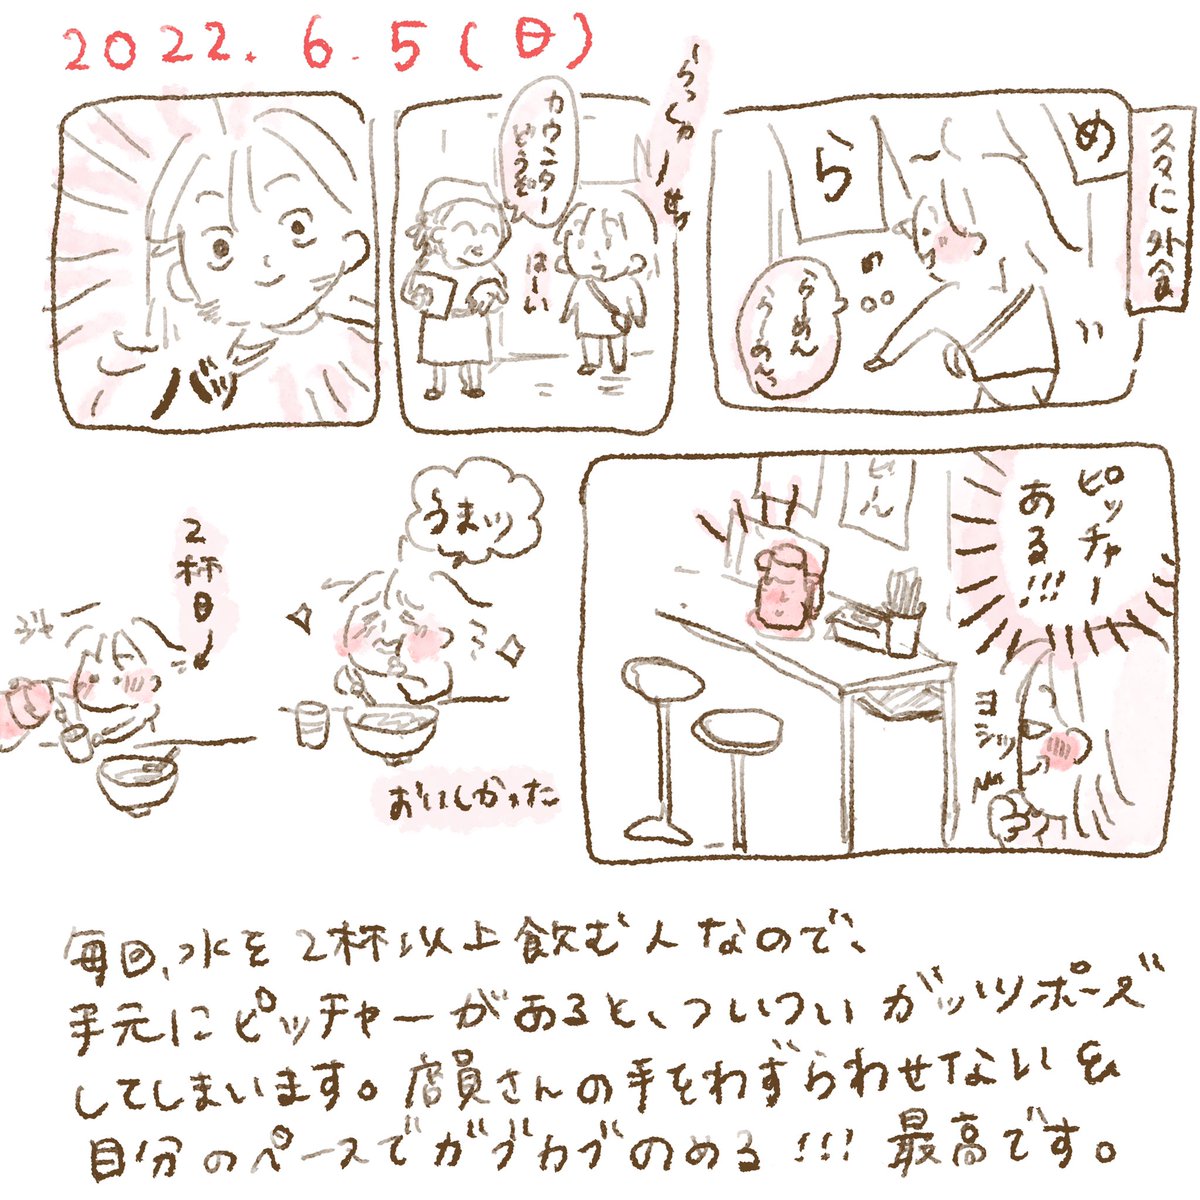 2022.6.5(日)
スタに外食
め
ら
らーめん
らーめん
らっしゃーせッ
カウンター
どうぞ
はーい
バッ
ピッチャー
ある!!!
ヨシッ
うまッ
おいしかった
2杯目
毎回、水を2杯以上飲む人なので、
手元にピッチャーがあると、ついついガッツポーズ
してしまいます。店員さんの手をわずらわせない&
自分のペースでガブガブのめる!!!最高です。